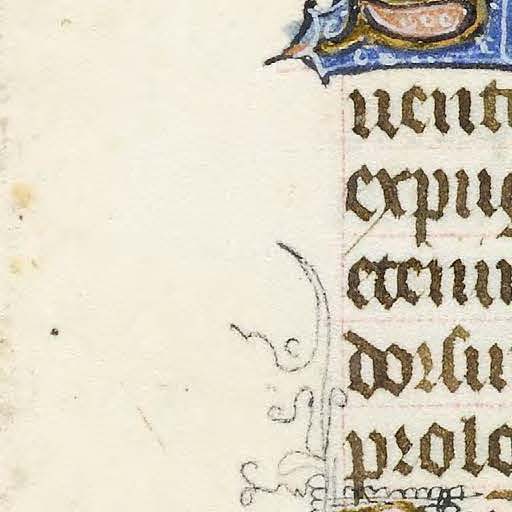 uentu
expug
etenim
dorsu
prolo